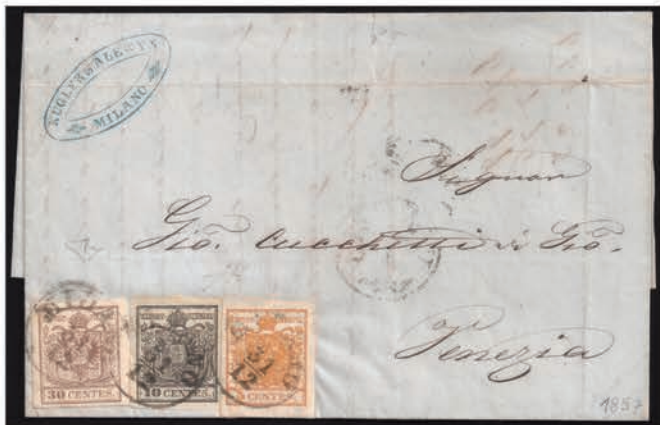 MILANO
Signor
Gio. Cucchetti di Gio.
Venezia
30 CENTES.
10 CENTES.
CENTES.
31
12
1857